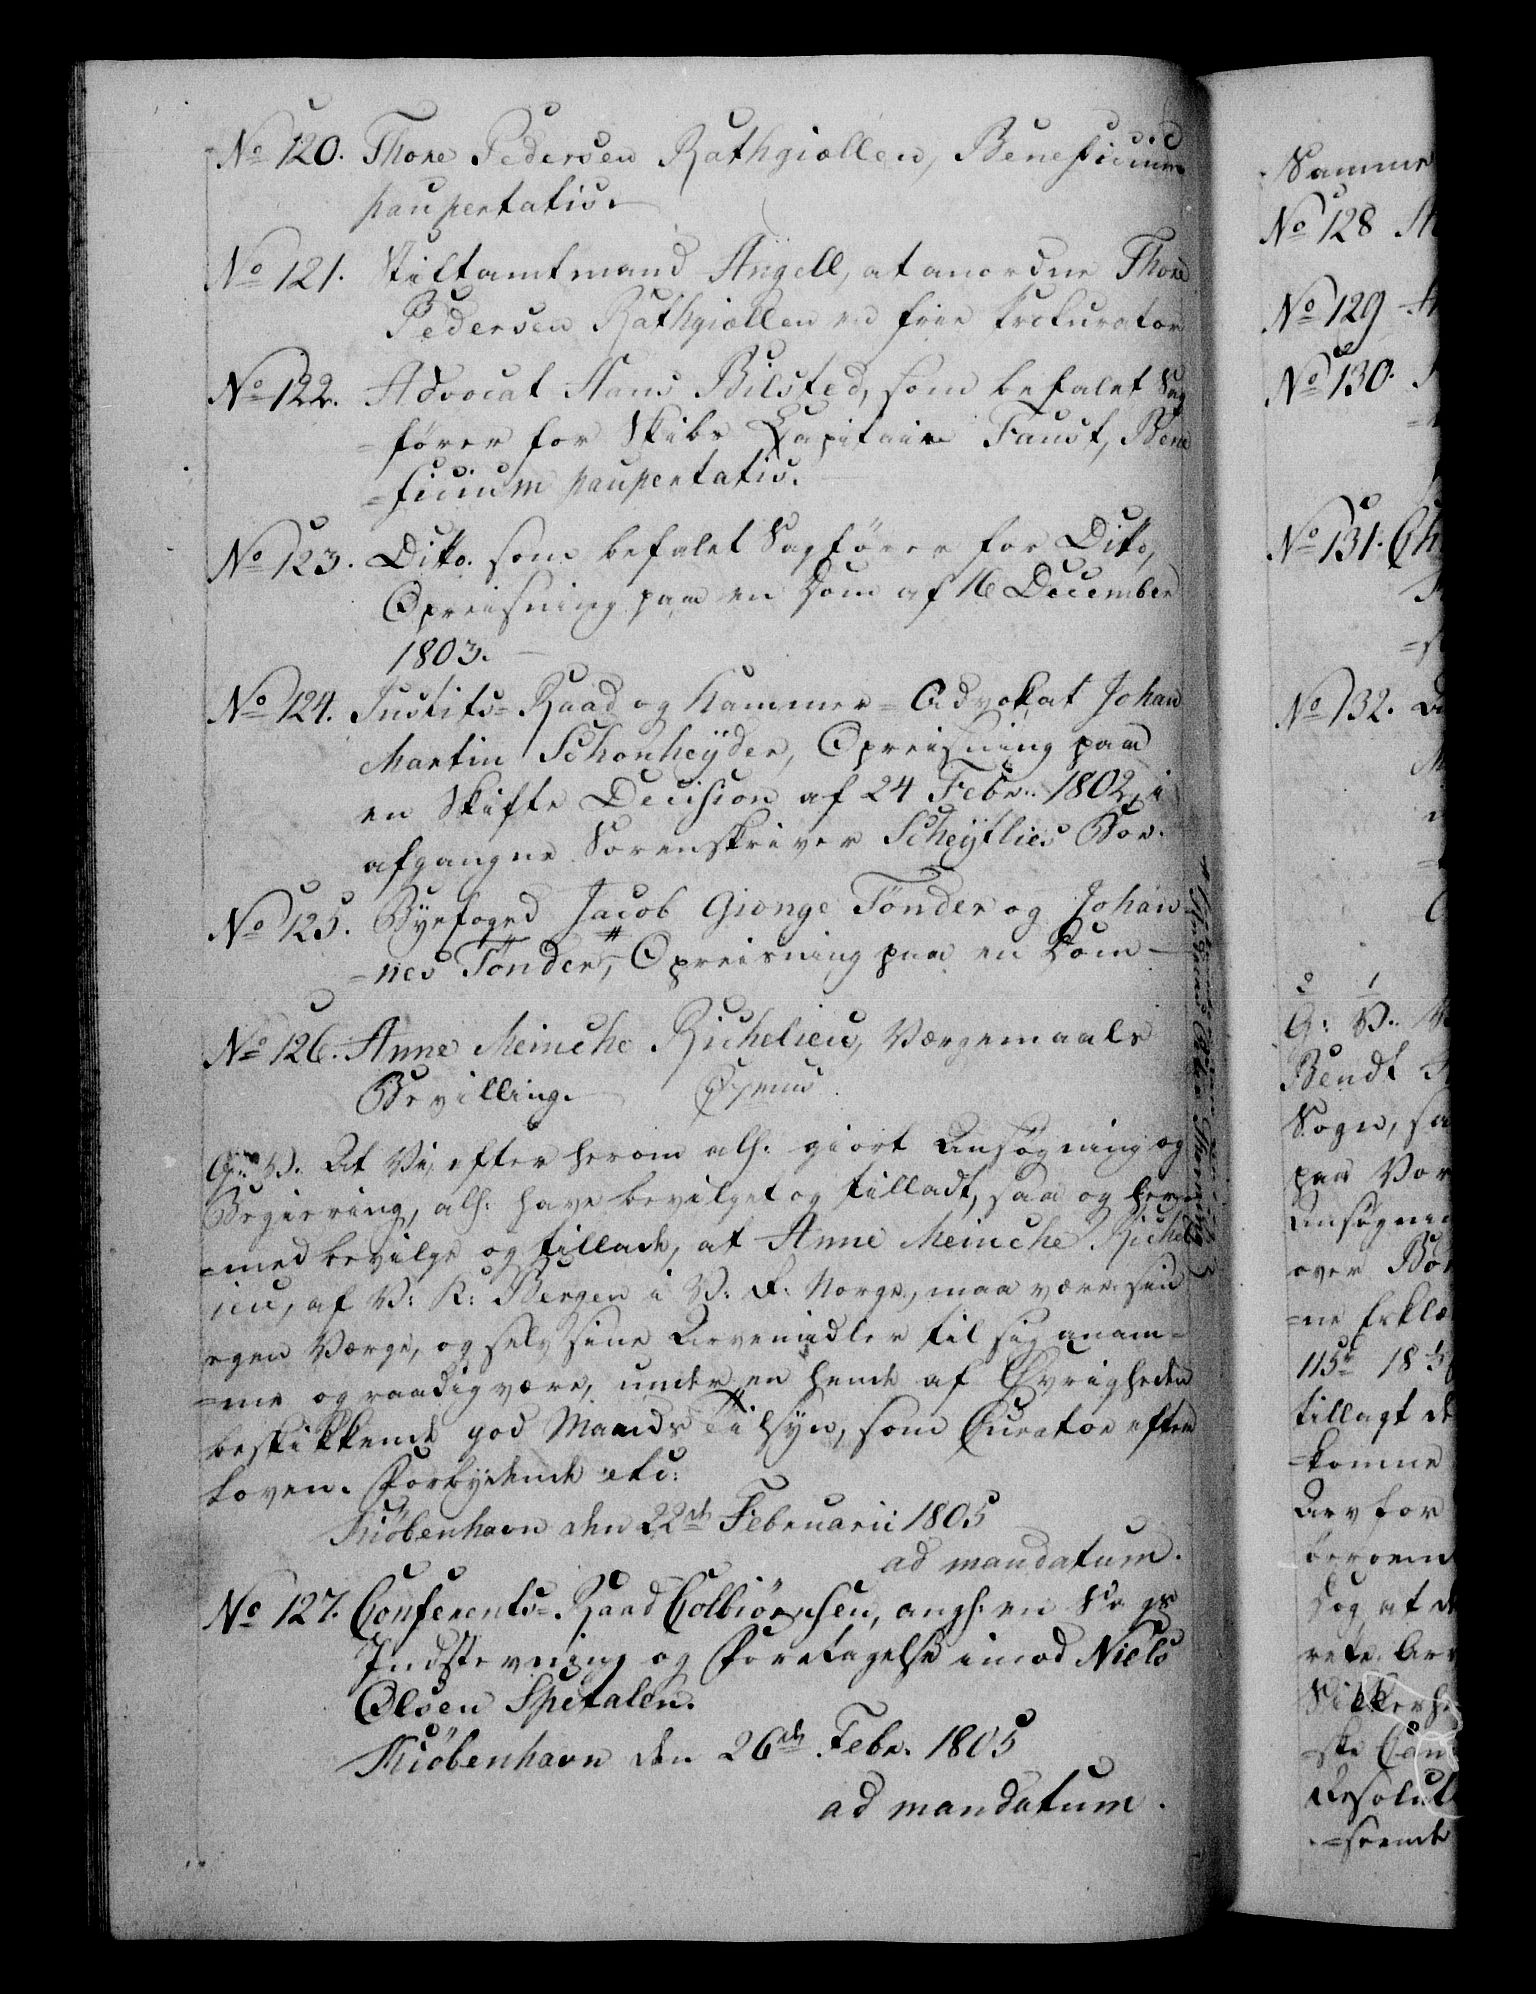 No 120. Thore Pedersen Rathgiællen, Beneficium
paupertatis.
No 121. Stiftamtmand Angell, at anordne Thore
Pedersen Rathgiællen en frie Prokurator
No 122. Advocat Hans Bilsted, som befalet Sag
=fører for Skibs Capitain Faust, Bene
=ficium paupertatis.
No 123. Ditto. som befalet Sagfører for Ditto,
Opreisning paa en Dom af 16 December
1803.
No 124. Justits=Raad og Kammer=Advokat Johan
Martin Schonheÿder, Opreisning paa
en Skifte Decision af 24 Febr: 1802, i
afgangne Sorenskriver Scheÿtlies Boe.
No 125. Byefoged Jacob Gionge Tönder og Johan
=nes Tönder, # Opreisning paa en Dom
No 126. Anne Meinche Richelieu, Værgemaals
Bevilling.
G: V. At Vi, efter herom alh: giort Ansøgning og
Begiering, alh: have bevilget og tilladt, saa og her
=med bevilge og tillade, at Anne Meinche Richel
ieu, af V: K: Bergen i V: R: Norge, maa være sin
egen Værge, og selv sine Arvemidler til sig anam=
=me og raadig være, under en hende af Øvrigheden
beskikkende god Mands Tilsÿn, som Curator efter
Loven. Forbydende etc:
Kiöbenhavn den 22de Februarii 1805
ad mandatum.
No 127. Conferents=Raad Colbiörnsen, angh: en Sags
Indstevning og Foretagelse imod Niels
Olsen Spetalen.
Kiöbenhavn den 26de Febr. 1805
ad mandatum.
Samme
No 128
No 129
No 130.
No 131. Ch
No 132.
G: V:
Bendt
Sogn, sa
paa Vor
Ansøgnin
over Bo
=ne Erklæ
115 18
tillagt de
=komme
Arv for
Dog at de
Sikkerhe
=ske Can
Resolut
=seende